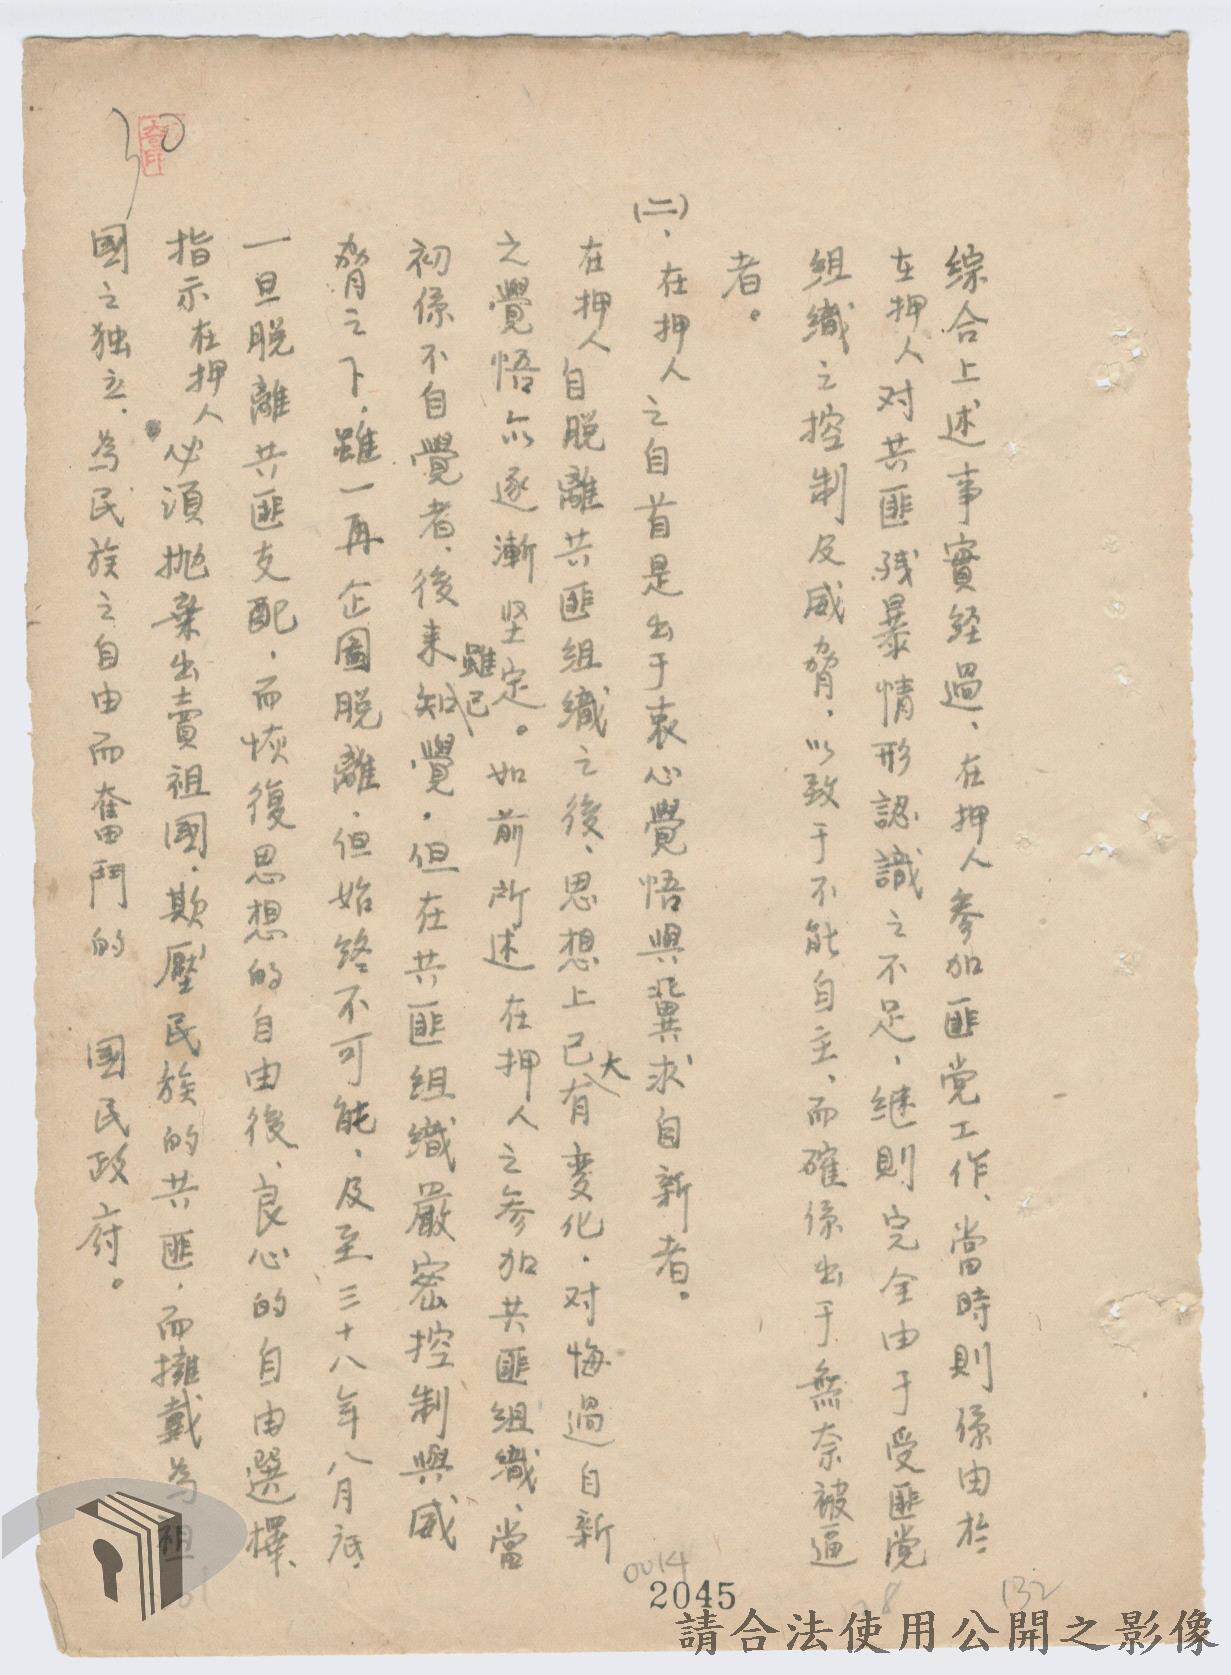 30
綜合上述事實経過、在押人参加匪党工作、當時則係由於
在押人对共匪残暴情形認識之不足，継則完全由于受匪党
組織之控制及威脅，以致于不能自主、而確係出于無奈被逼
者。
(二)、在押人之自首是出于衷心覺悟與冀求自新者。
在押人自脱離共匪組織之後、思想上已大有变化，对悔過自新
之覺悟亦逐漸坚定。如前所述在押人之参加共匪組織、當
初係不自覺者、後来雖已知覺，但在共匪組織嚴密控制與威
脅之下，雖一再企圖脱離，但始終不可能，及至三十八年八月底，
一旦脱離共匪支配，而恢復思想的自由後、良心的自由選擇、
指示在押人必須抛棄出賣祖國，欺壓民族的共匪，而擁戴為祖
國之独立，為民族之自由而奮鬥的　國民政府。
0014
2045
132
請合法使用公開之影像